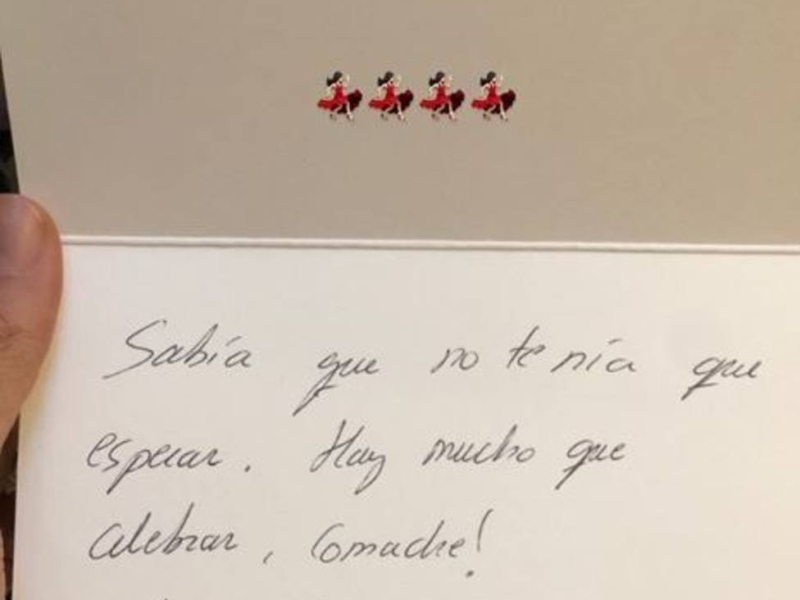 Sabía que no tenía que
esperar. Hay mucho que
celebrar, Comadre!